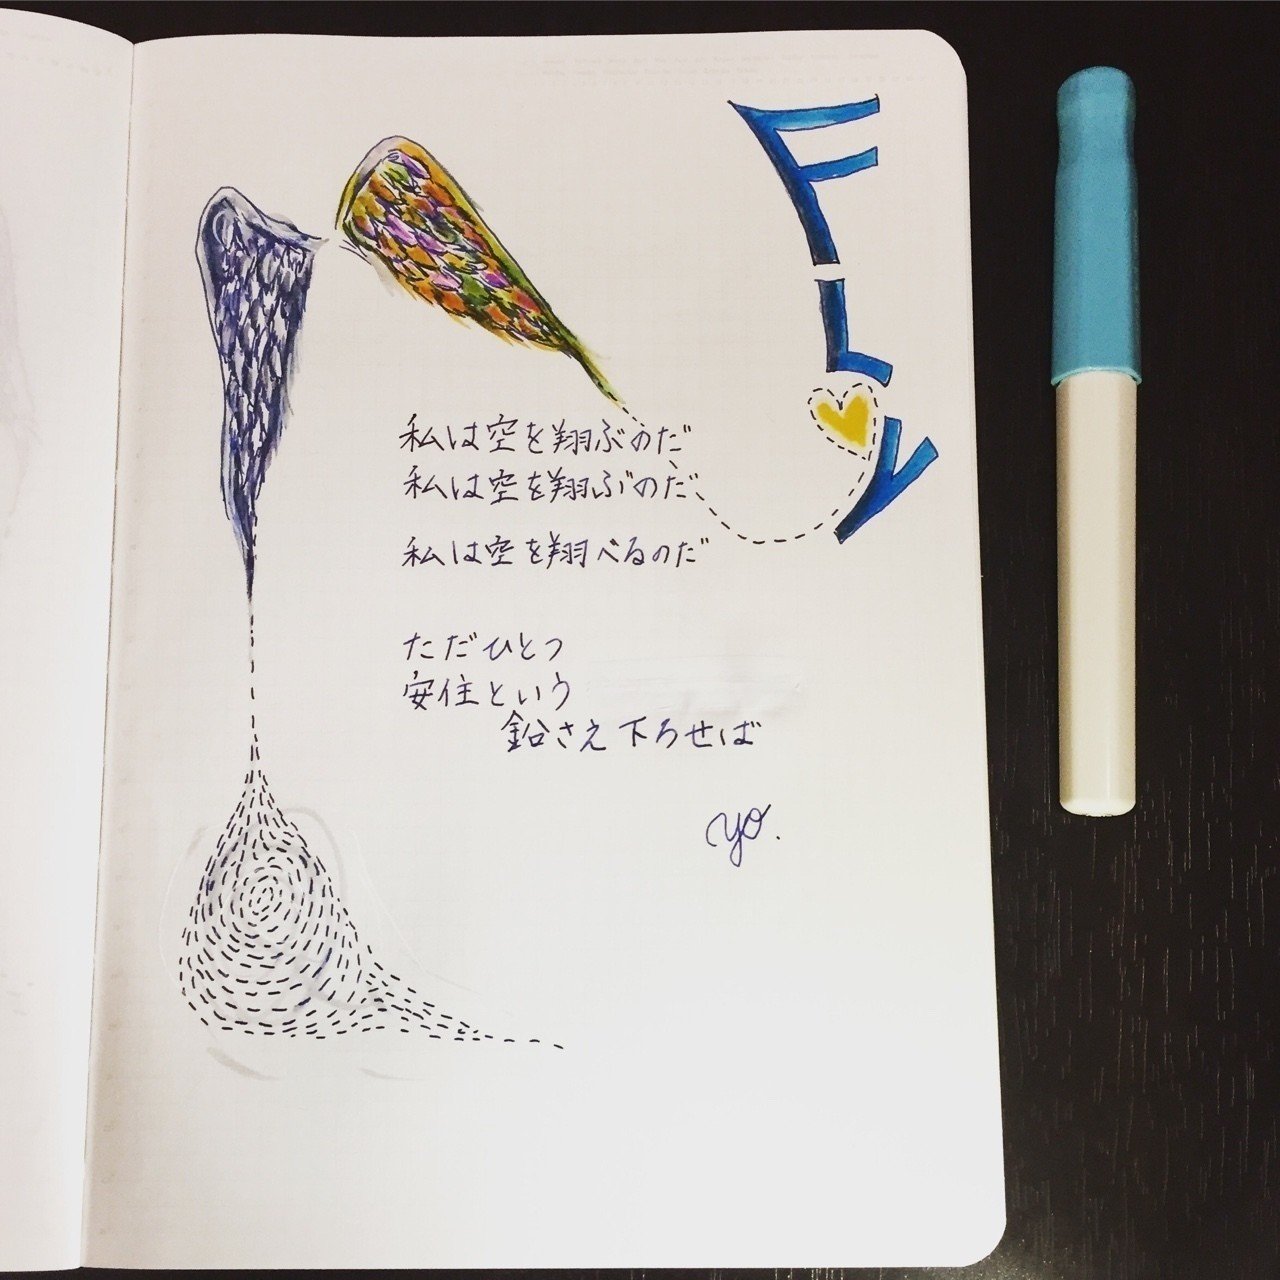 FLy
私は空を翔ぶのだ
私は空を翔ぶのだ
私は空を翔べるのだ
ただひとつ
安住という
鉛さえ下ろせば
yo.